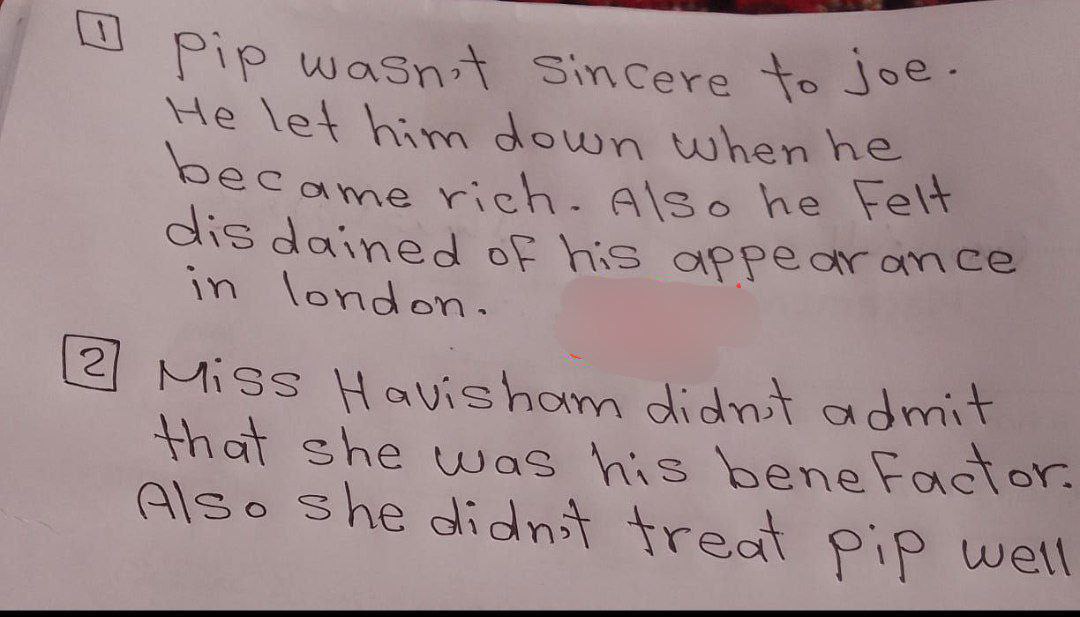 1 Pip wasn't sincere to joe.
He let him down when he
became rich. Also he Felt
disdained of his appearance
in london.
2 Miss Havisham didn't admit
that she was his benefactor.
Also she didn't treat pip well